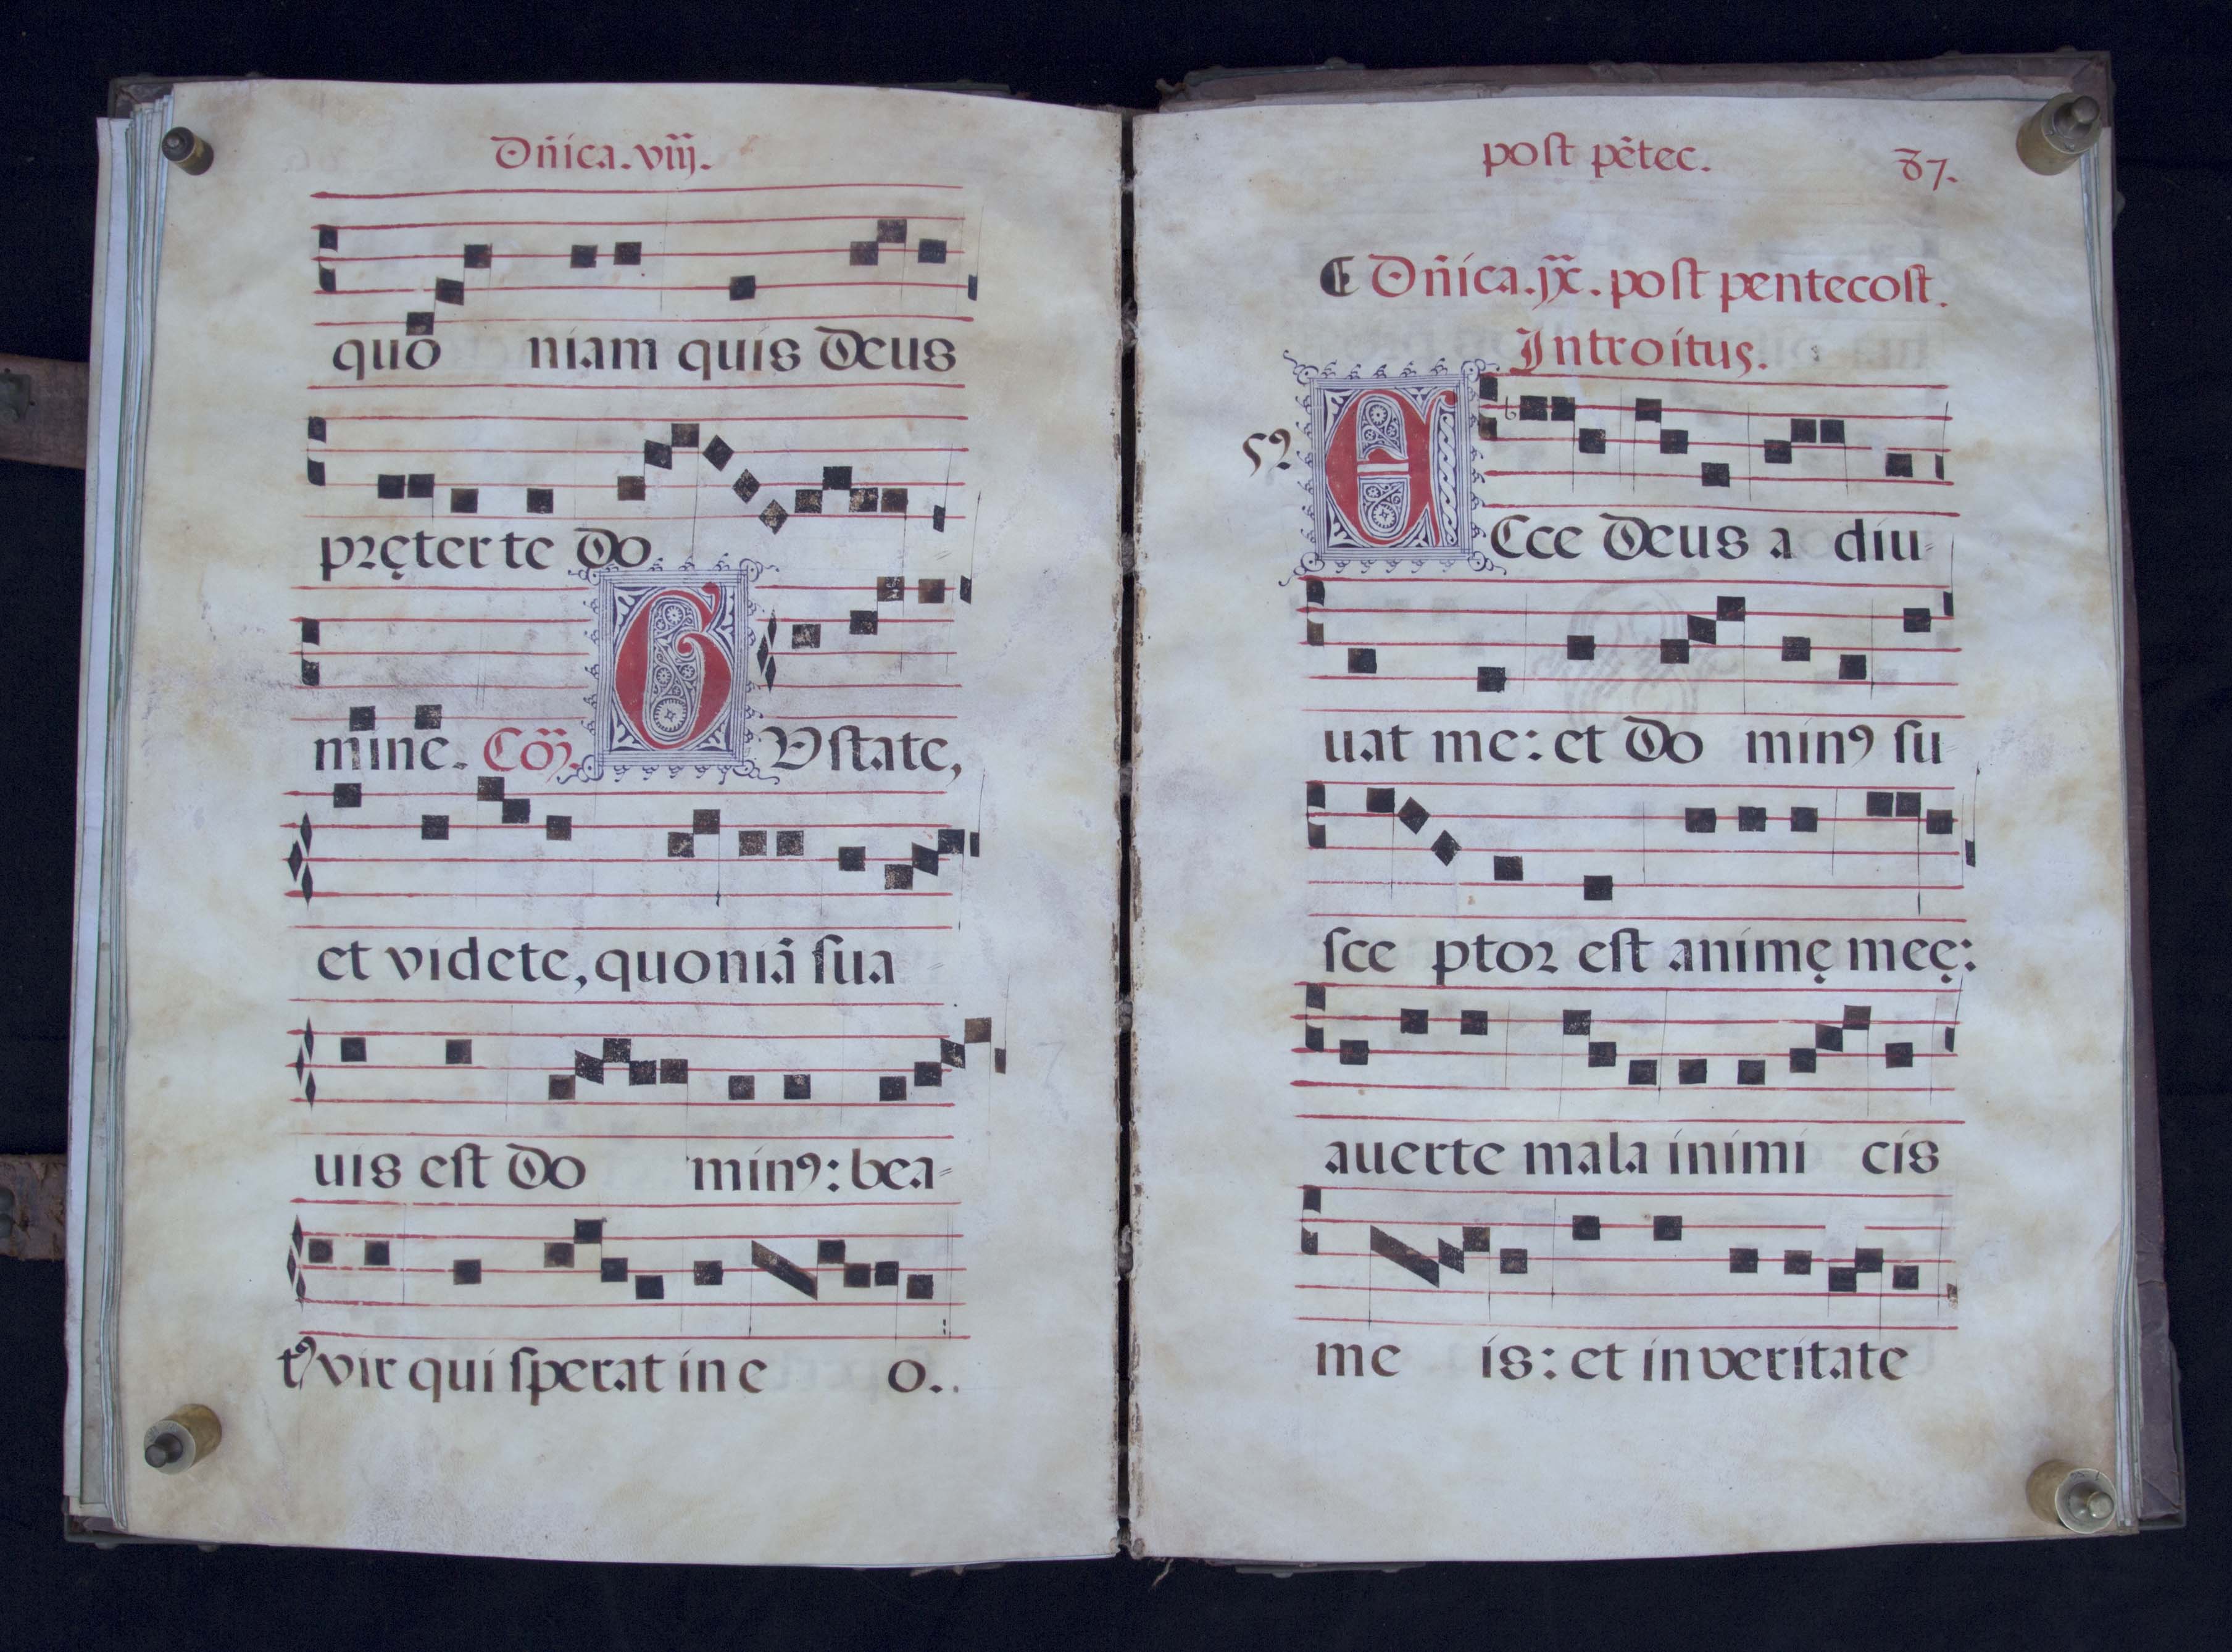 Dñica.viij.
quo niam quis Deus
pręter te Do
mine. Cõ. G Vstate,
et videte, quoniã sua
uis est Do minꝰ: bea-
tꝰ vir qui sperat in e o.
post pẽtec. 87.
Dñica.jx. post pentecost.
Introitus.
E Cce Deus a diu
uat me: et Do minꝰ su
sce ptor est animę meę:
auerte mala inimi cis
me is: et in veritate